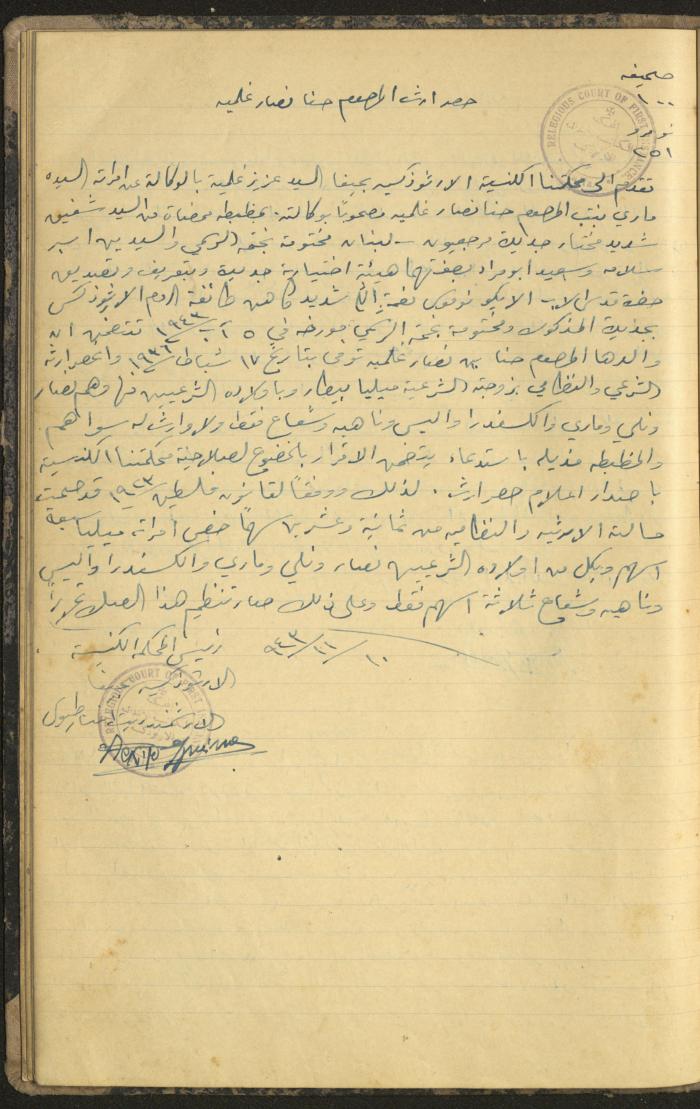 صحيفه
١٠٠
نومرو
٢٥١
RELEGIOUS COURT OF FIRST INSTANCE
حصر ارث المرحوم حنا نصار غلميه
تقدم الى محكمتنا الكنسية الارثوذكسيه بحيفا السيد عزيز غلمية بالوكالة عن امرأته السيده
ماري بنت المرحوم حنا نصار غلميه مصحوبًا بوكالته بمظبطه ممضاة من السيد شفيق
شديد مختار جديدة مرجعيون – لبنان مختومة بختمه الرسمي والسيدين اسبر
سلامه وسعيد ابو مراد بصفتهما هيئة اختيارية جديدة وبتعريف وتصديق
حضرة قدس الاب الايكونوموس نعمة الله شديد كاهن طائفة الروم الارثوذكس
بجديدة المذكوره ومختومة بختمه الرسمي مورخه في ٥ آب ١٩٤٣ تتضمن ان
والدها المرحوم حنا بن نصار غلميه توفى بتاريخ ١٧ شباط ١٩٣٦ وانحصر ارثه
الشرعي والنظامي بزوجته الشرعية ميليا بيطار وباولاده الشرعيين منها وهم نصار
ونلي وماري والكسندرا واليس وناهيه وشعاع فقط ولا وارث له سواهم
والمظبطه مذيله باستدعاء يتضمن الاقرار بالخضوع لصلاحية محكمتنا الكنسية
باصدار اعلام حصر ارث. لذلك ووفقًا لقانون فلسطين ١٩٢٣ قد صحت
مسالته الارثيه والنظاميه من ثمانية وعشرين سهمًا خص امرأته ميليا سبعة
اسهم وبكل من اولاده الشرعيين نصار ونلي وماري والكسندرا واليس
وناهيه وشعاع ثلاثة اسهم فقط وعلى ذلك صار تنظيم هذا الصك تحريرًا
١٠/١١/٩٤٣
رئيس المحكمة الكنسية
الارثوذكسيه
الارشمندريت
RELEGIOUS COURT OF FIRST